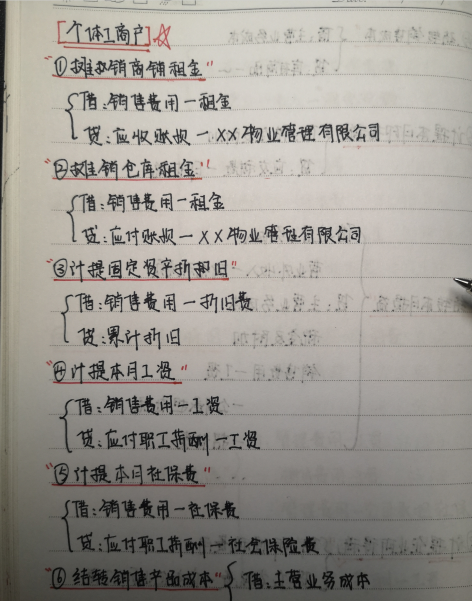 [个体工商户]☆
"①摊销商铺租金"
借:销售费用一租金
贷:应收账款一XX物业管理有限公司
"②摊销仓库租金"
借:销售费用一租金
贷:应付账款一XX物业管理有限公司
"③计提固定资产折旧"
借:销售费用一折旧费
贷:累计折旧
"④计提本月工资"
借:销售费用一工资
贷:应付职工薪酬一工资
"⑤计提本月社保费"
借:销售费用一社保费
贷:应付职工薪酬一社会保险费
"⑥结转销售产品成本" 借:主营业务成本